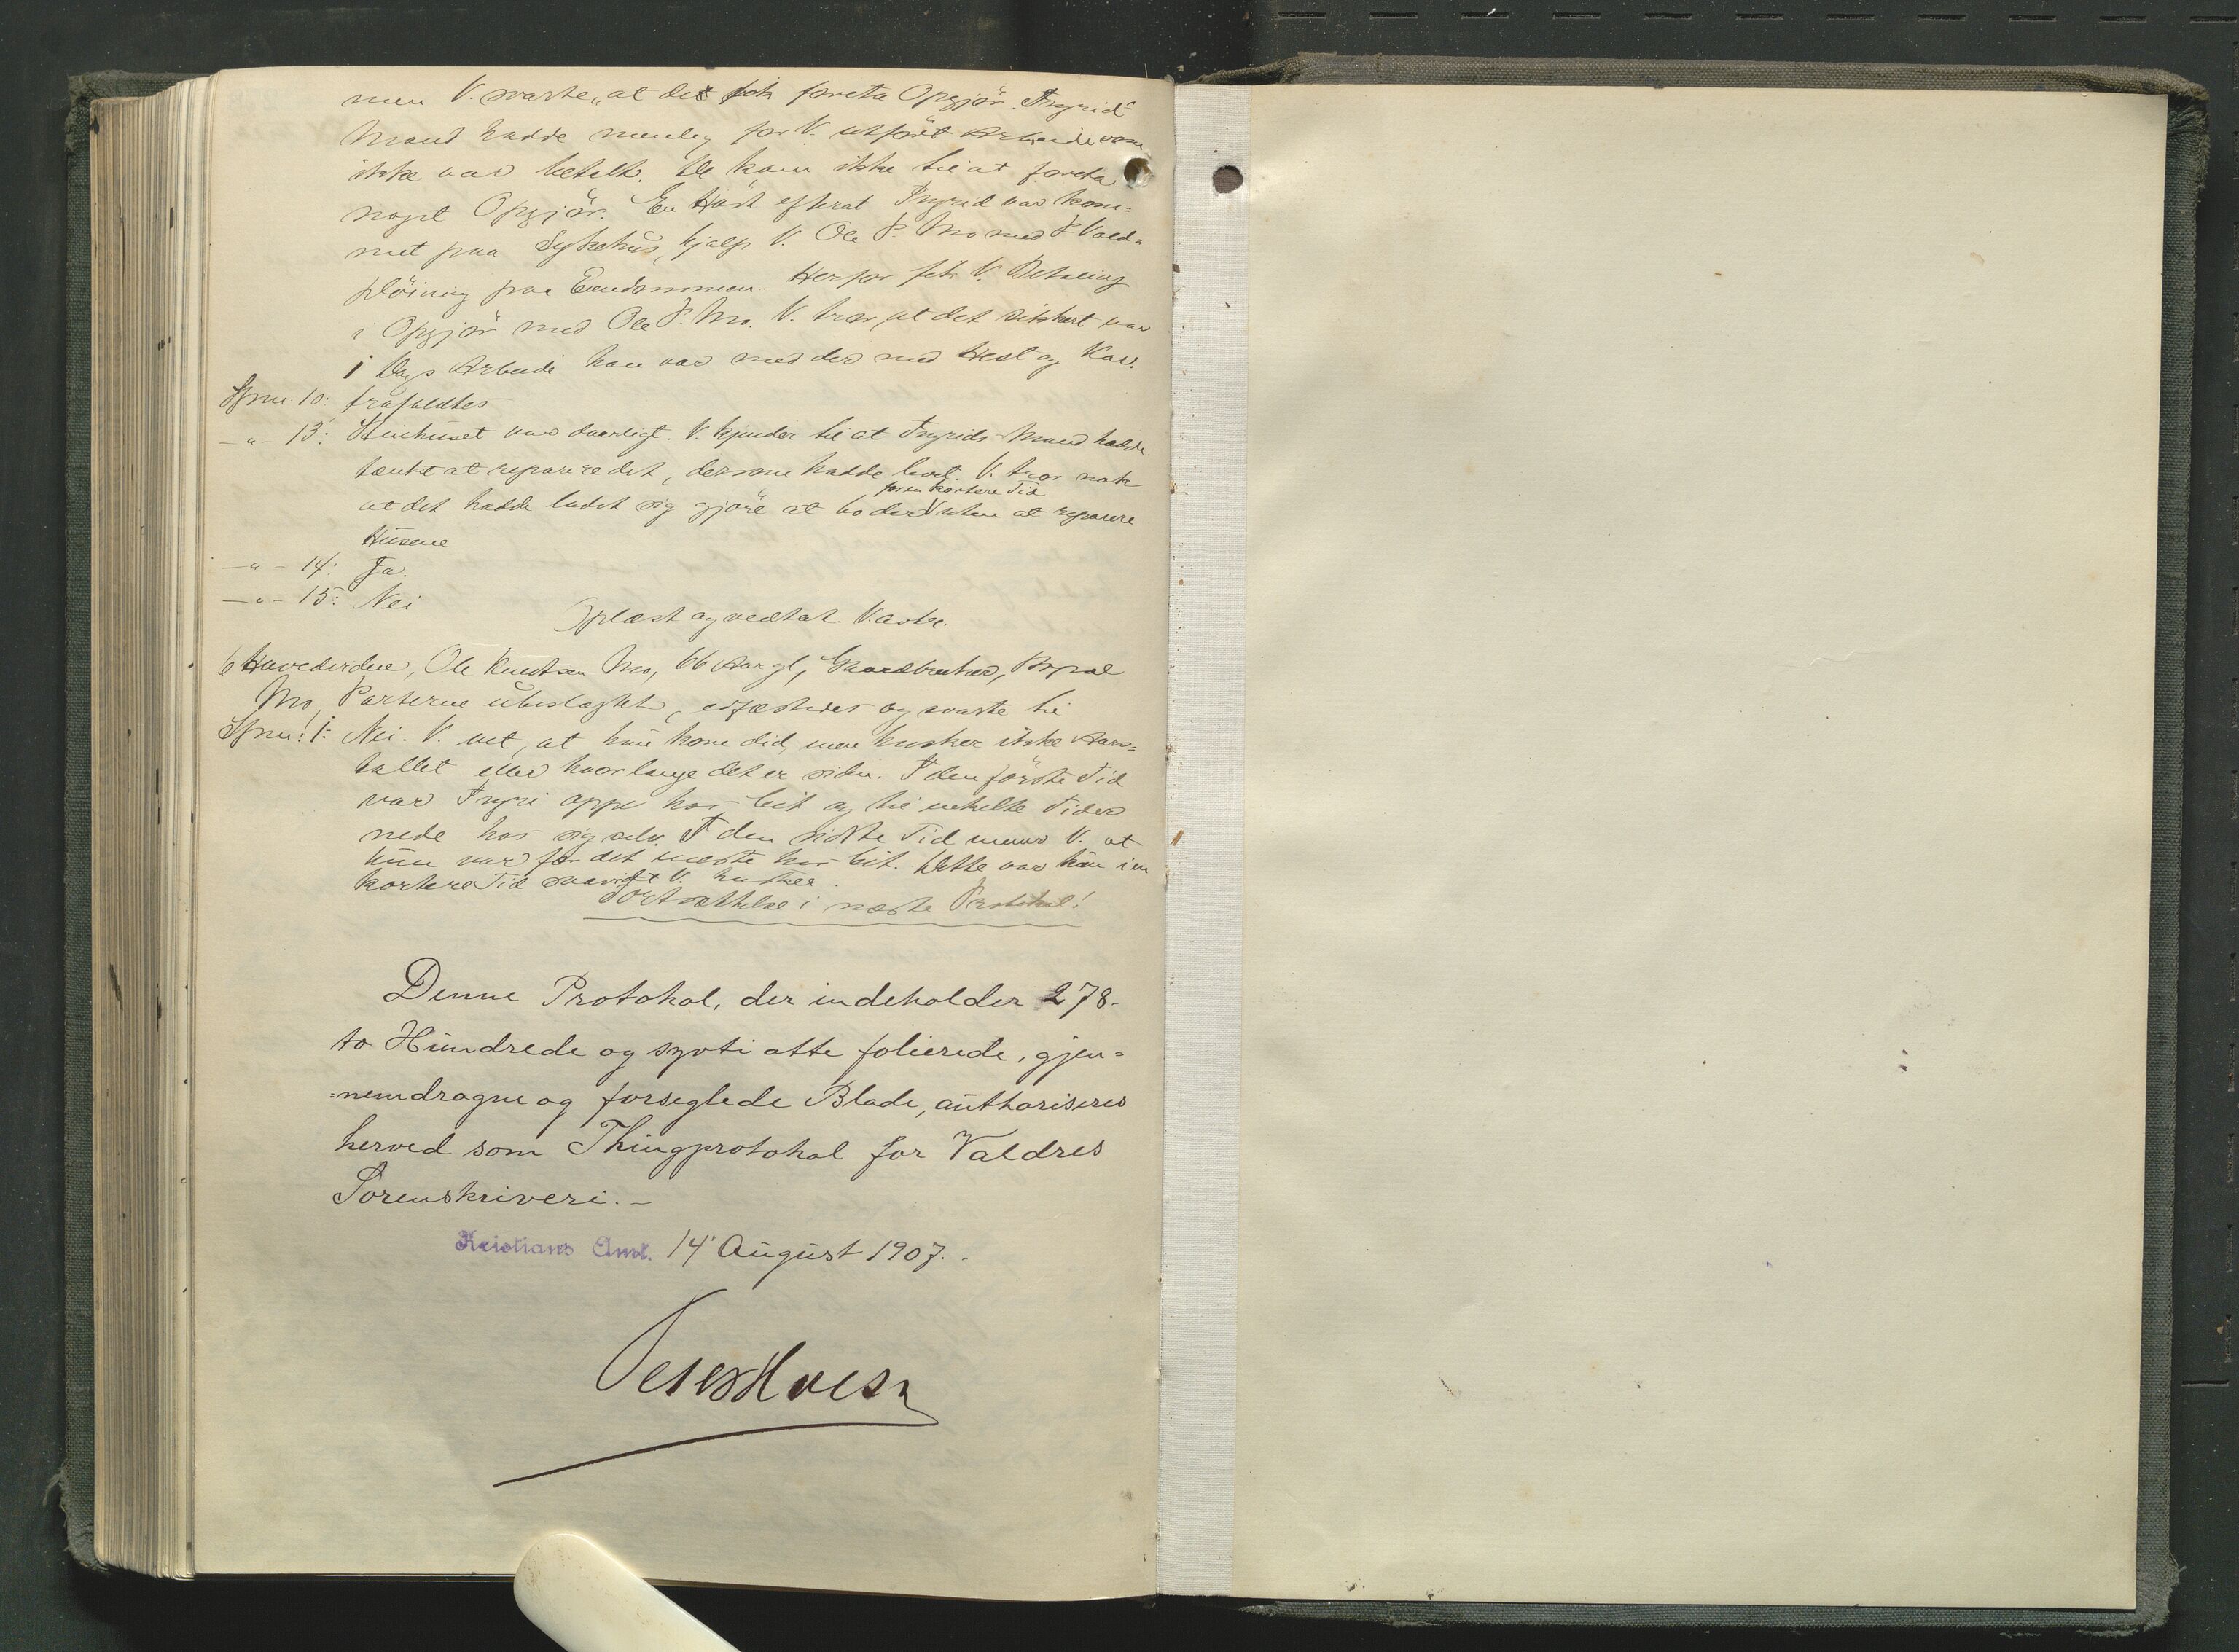 men V. svarte, at de fik foreta Opgjör. Ingrids
Mand hadde nemlig for V. utført Arbeide som
ikke var betalt. De kom ikke til at foreta
noget Opgjör. En Höst efterat Ingrid var kom=
met paa Sykehus, hjalp V. Ole P. Mo med
plöining paa Eiendommen. Herfor fik V. Betaling
i Opgjör med Ole P. Mo. V. tror, at det sikkert var
1 Dags Arbeide han var med der med Hest og Kar.
Spm. 10: frafaldtes
-"- 13: huset var daarligt. V. kjender til at Ingrids Mand hadde
tænkt at reparere det, dersom hadde levet. V. tror nok
for en kortere Tid
at det hadde ladet sig gjöre at bo der uten at reparere
Husene
-"- 14: Ja.
-"- 15: Nei
Oplæst og vedtat. V. avtr.
6 Hovedvidne, Ole Knutsen Mo, 66 Aar gl, Gaardbruker, Bopæl
Mo, Parterne ubeslægtet, edfæstedes og svarte til
Spm. 1: Nei. V. vet, at hun kom did, men husker ikke Aars=
tallet eller hvor længe det er siden. I den förste Tid
var Ingri oppe hos leit og til enkelte Tider
nede hos sig selv. I den sidste Tid mener V. at
hun var for det meste hos leit. Dette var kun i en
kortere Tid saavidt V. husker.
Fortsættelse i næste Protokol!
Denne Protokol, der indeholder 278-
to Hundrede og sytti otte folierede, gjen=
=nemdragne og forseglede Blade, authoriseres
herved som Thingprotokol for Valdres
Sorenskriveri.-
Kristians Amt. 14' August 1907..